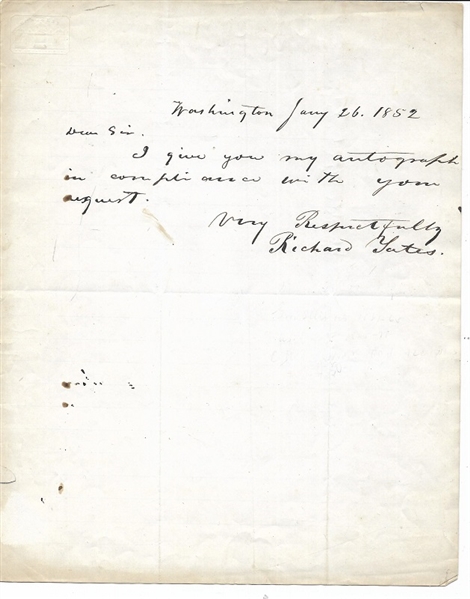 Washington Jany 26. 1852
Dear Sir.
I give you my autograph
in compliance with your
request.
Very Respectfully
Richard Yates.